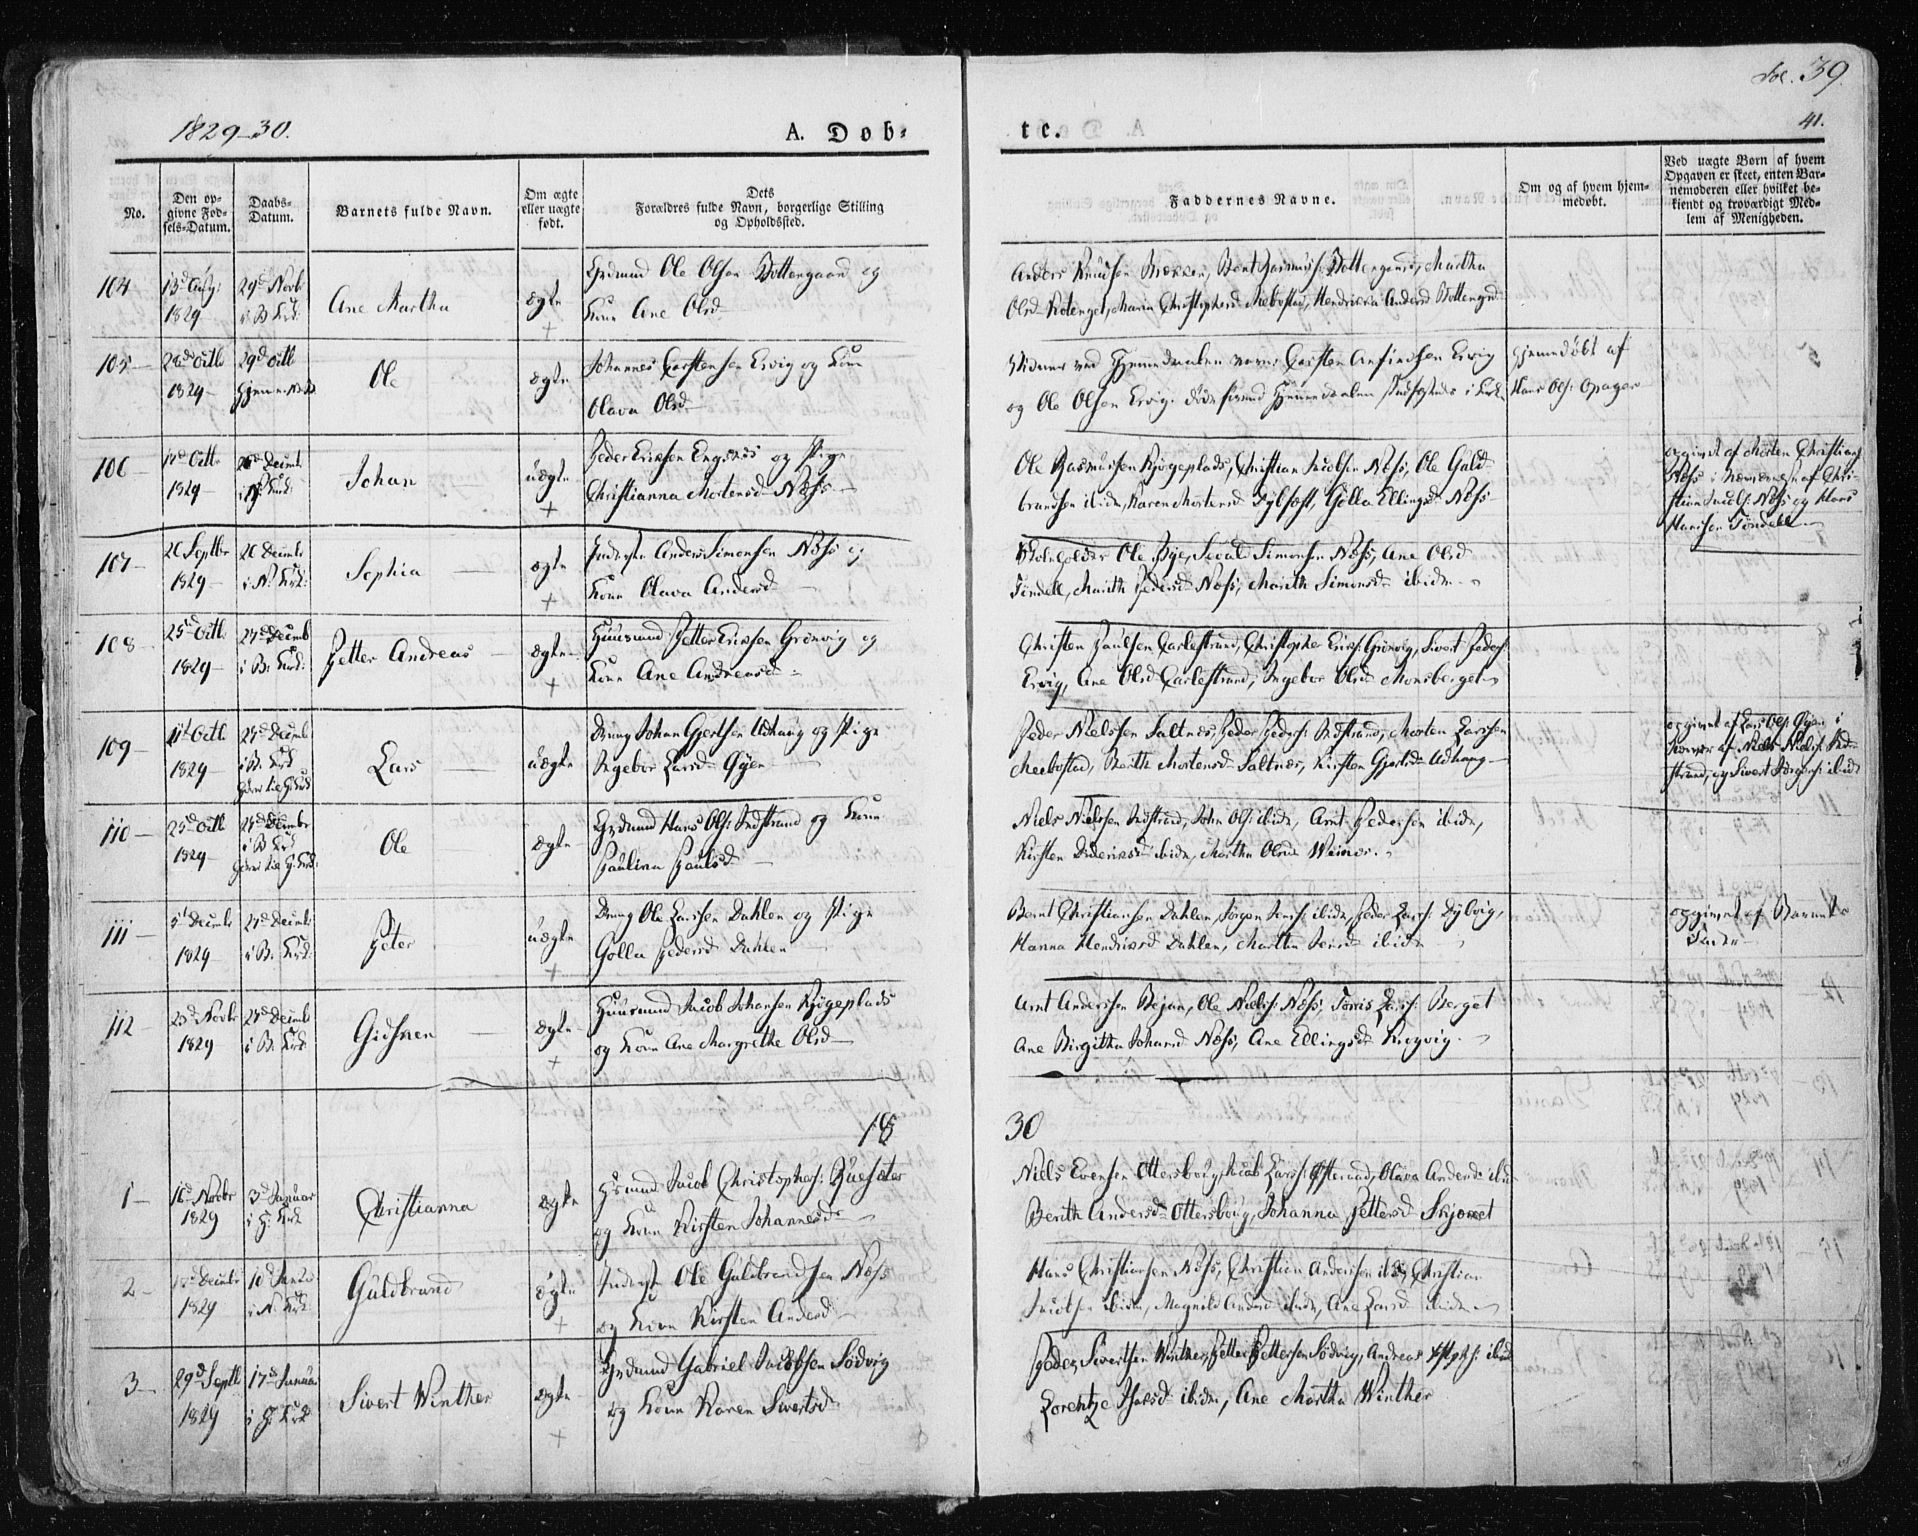 Fol. 39.
41.
1829-30.
A. Dob-
te.
No.
Den op-
givne Fød-
sels-Datum.
Daabs-
Datum.
Barnets fulde Navn.
Om ægte
eller uægte
født.
Dets
Forældres fulde Navn, borgerlige Stilling
og Opholdssted.
Faddernes Navne.
Om og af hvem hjem-
medøbt.
Ved uægte Børn af hvem
Opgaven er skeet, enten Bar-
nemoderen eller hvilket be-
kiendt og troværdigt Med-
lem af Menigheden.
104
13d Aug:
1829
29d Novbr
i B. Kird:
Ane Martha
ægte
Grdmand Ole Olsen Bottengaard og
Kone Ane Olsd
Anders Knudsen Brekken, Bent Rasmus: Bottengaard, Martha
Olsd Kotenget, Maria Christophersd Mebostad, Hendrikka Andersd Bottengrd
105
28d Octb
1829
29d Octb
Ole
ægte
Johannes Carstensen Ervig og Kone
Olava Olsd
Vidner ved Hjemmedaaben vare Carsten Arfindsen Ervig
og Ole Olsen Ervig. døde forend Hjemmedaaben stadfæstedes i Kirk
hjemedøbt af
Hans Ols: Opager
106
11d Octbr
1829
26d Decmb
i N. Kird:
Johan
uægte
Peder Ericksen Engsnes og Pige
Christianna Mortensd Næss
Ole Rasmussen Kjøgeplads, Christian Jacobsen Næss, Ole Guld-
brandsen ibidm, Karen Mortensd Dybfest, Golla Ellingsd Næss
opgivet af Morten Christians:
Næss i Nærværelse af Chri-
stian Jacobs: Næss og Hans
Hansen Tindell
107
26 Septbr
1829
26 Decmb
i N. Kird:
Sophia
ægte
Inderste Anders Simonsen Næss og
Kone Olava Andersd
Skoleholder Ole Bye, Sivert Simonsen Næss, Ane Olsd
Tindell, Marith Pedersd Næss, Marith Simonsd ibidm
108
25d Octb
1829
27d Decmb
i B. Kird:
Petter Andreas
ægte
Huusmand Petter Ericksen Grønvig og
Kone Ane Andreasd
Christen Paulsen Carlestrand, Christopher Erics: Grønvig, Sivert Peders:
Ervig, Ane Olsd Carlestrand, Ingebor Olsd Monsberget
109
11t Octb
1829
27d Decmb
i B. Kird
Lars
uægte
Dreng Johan Gjertsen Udhaug og Pige
Ingebor Larsd Øyen
Peder Nielssen Saltnes, Peder Peders: Indstrand, Morten Larssen
Meebostad, Berith Mortensd Saltnes, Kirsten Gjertsd Udhaug
opgivet af Lars Ols: Øyen i
Nærvær af Niels Niels: Ind-
strand, og Sivert Jørgens: ibid
110
25d Octb
1829
27d Decmbr
i B. Kird
Ole
ægte
Grdmand Hans Ols: Indstrand og Kone
Paulina Paulsd
Niels Nielssen Indstrand, John Ols: ibidm, Arnt Pedersen ibidm,
Kirsten Dideriksd ibidm, Martha Olsd Weines.
111
5t Decmb
1829
27d Decmb
i B. Kird:
Peter
uægte
Dreng Ole Larssen Dahlen og Pige
Golla Pedersd Dahlen
Bernt Christiansen Dahlen, Jørgen Jens: ibidm, Peder Lars: Dybvig,
Hanna Hendriksd Dahlen, Martha Jensd ibidm
opgivet af Barnets
Fader
112
23d Novbr
1829
27d Decmb
i B. Kird:
Gidsken
ægte
Huusmand Jacob Johansen Kjøgeplads
og Kone Ane Margrethe Olsd
Arnt Anderssen Bejan, Ole Niels: Næss, Tønis Lars: Berget
Ane Birgitha Johansd Næss, Ane Ellingsd Krogvig.
18
30
1
16d Novbr
1829
3d Januar
i H: Kird
Christianna
ægte
Huusmand Jacob Christophers: Ruesæter
og Kone Kirsten Johannesd
Niels Evensen Ottersboug, Jacob Larss: Østerund, Olava Andersd ibid
Berith Andersd Ottersboug, Johanna Pettersd Skjørset
2
Decmb
1829
10d Janua
i N. Kird
Guldbrand
ægte
Inderste Ole Guldbrandsen Næss
og Kone Kirsten Andersd
Hans Christiansen Næss, Christian Anderssen ibid, Christian
Jacobsen ibidm, Magnild Andersd ibidm, Ane Larsd ibidm
3
29d Septb
1829
17d Januar
i H: Kird
Sivert Winther
ægte
Grdmand Gabriel Jacobsen Sødvig
og Kone Karen Sivertsd
Peder Sivertsen Winther, Petter Pettersen Sødvig, Andreas ibid
Lorentze ibidm, Ane Martha Winther